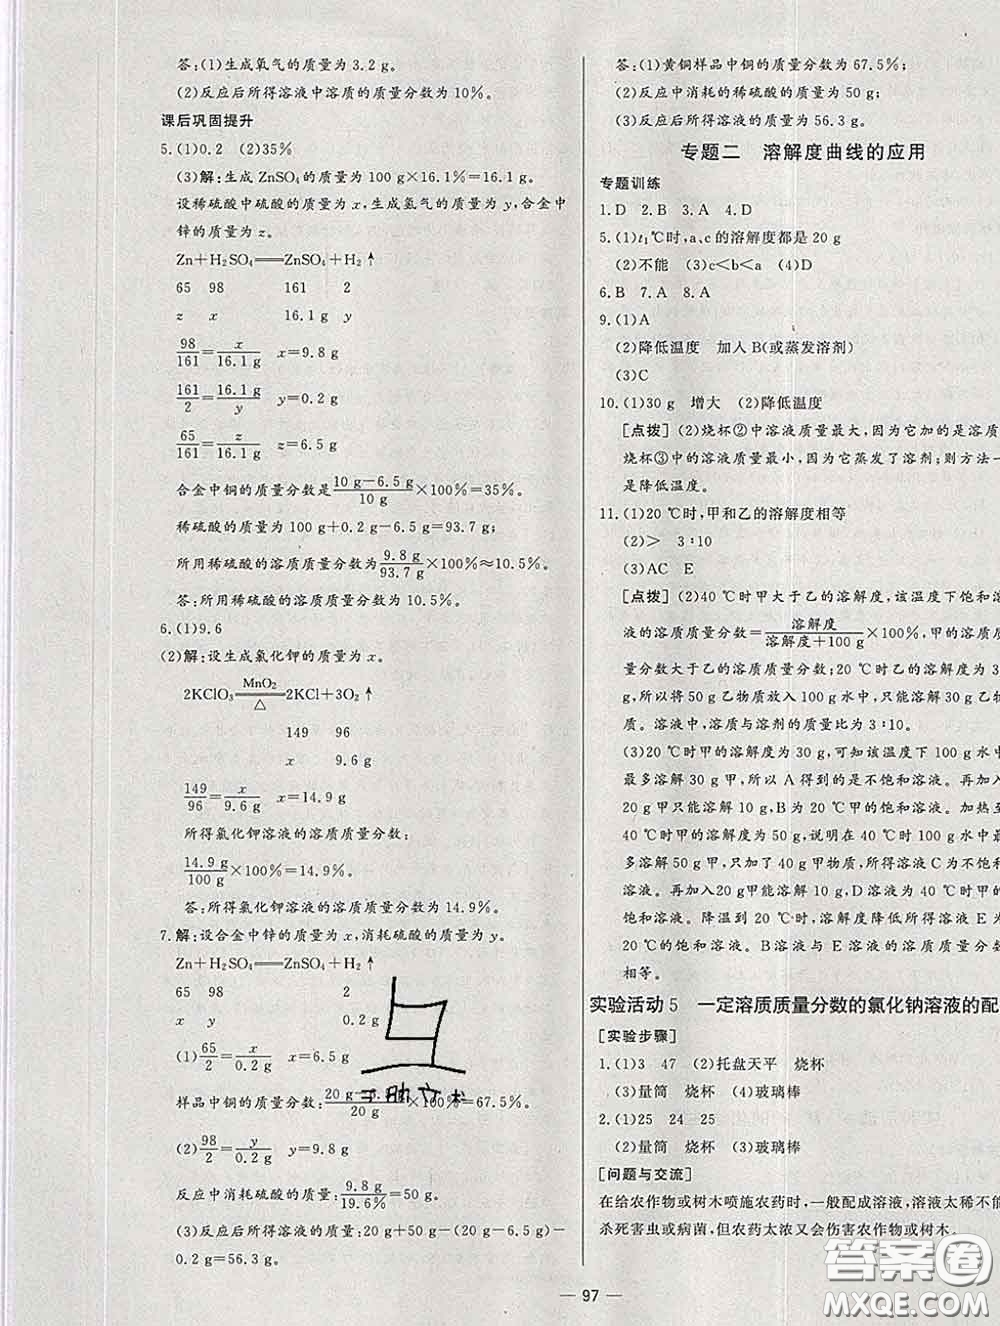 答:(1)生成氧气的质量为3.2 g。
(2)反应后所得溶液中溶质的质量分数为10%。
课后巩固提升
5.(1)0.2 (2)35%
(3)解:生成ZnSO₄的质量为100 g×16.1%=16.1 g。
设稀硫酸中硫酸的质量为x,生成氢气的质量为y,合金中
锌的质量为z。
Zn+H₂SO₄══ZnSO₄+H₂↑
65 98 161 2
z x 16.1 g y
98/161=x/16.1 g x=9.8 g
161/2=16.1 g/y y=0.2 g
65/161=z/16.1 g z=6.5 g
合金中铜的质量分数是(10 g-6.5 g)/10 g×100%=35%。
稀硫酸的质量为100 g+0.2 g-6.5 g=93.7 g;
所用稀硫酸的溶质质量分数为9.8 g/93.7 g×100%≈10.5%。
答:所用稀硫酸的溶质质量分数为10.5%。
6.(1)9.6
(2)解:设生成氯化钾的质量为x。
2KClO₃ ══(MnO₂/△) 2KCl+3O₂↑
149 96
x 9.6 g
149/96=x/9.6 g x=14.9 g
所得氯化钾溶液的溶质质量分数:
14.9 g/100 g×100%=14.9%。
答:所得氯化钾溶液的溶质质量分数为14.9%。
7.解:设合金中锌的质量为x,消耗硫酸的质量为y。
Zn+H₂SO₄══ZnSO₄+H₂↑
65 98 2
x y 0.2 g
(1)65/2=x/0.2 g x=6.5 g
样品中铜的质量分数:20 g-6.5 g/20 g×100%=67.5%。
(2)98/2=y/0.2 g y=9.8 g
反应中消耗硫酸的质量:9.8 g/19.6%=50 g。
(3)反应后所得溶液的质量:20 g+50 g-(20 g-6.5 g)-
0.2 g=56.3 g。
答:(1)黄铜样品中铜的质量分数为67.5%;
(2)反应中消耗的稀硫酸的质量为50 g;
(3)反应后所得溶液的质量为56.3 g。
专题二 溶解度曲线的应用
专题训练
1.D 2.B 3.A 4.D
5.(1)t₁℃时,a、c的溶解度都是20 g
(2)不能 (3)c<b<a (4)D
6.B 7.A 8.A
9.(1)A
(2)降低温度 加入B(或蒸发溶剂)
(3)C
10.(1)30 g 增大 (2)降低温度
[点拨] (2)烧杯②中溶液质量最大,因为它加的是溶质
烧杯③中的溶液质量最小,因为它蒸发了溶剂;则方法一
是降低温度。
11.(1)20 ℃时,甲和乙的溶解度相等
(2)> 3∶10
(3)AC E
[点拨] (2)40 ℃时甲大于乙的溶解度,该温度下饱和
液的溶质质量分数=溶解度/(溶解度+100 g)×100%,甲的溶质质
量分数大于乙的溶质质量分数;20 ℃时乙的溶解度为3
g,所以将50 g乙物质放入100 g水中,只能溶解30 g乙物
质。溶液中,溶质与溶剂的质量比为3∶10。
(3)20 ℃时甲的溶解度为30 g,可知该温度下100 g水
最多溶解30 g甲,所以A得到的是不饱和溶液。再加入
20 g甲只能溶解10 g,B为20 ℃的饱和溶液。加热至
40 ℃时甲的溶解度为50 g,说明在40 ℃时100 g水中最
多溶解50 g甲,只加了40 g甲物质,所得溶液C为不饱和
溶液。再加入20 g甲能溶解10 g,D溶液为40 ℃时甲的
饱和溶液。降温到20 ℃时,溶解度降低所得溶液E为
20 ℃的饱和溶液。B溶液与E溶液的溶质质量分数
相等。
实验活动5 一定溶质质量分数的氯化钠溶液的配
[实验步骤]
1.(1)3 47 (2)托盘天平 烧杯
(3)量筒 烧杯 (4)玻璃棒
2.(1)25 24 25
(2)量筒 烧杯 (3)玻璃棒
[问题与交流]
在给农作物或树木喷施农药时,一般配成溶液,溶液太稀不能
杀死害虫或病菌,但农药太浓又会伤害农作物或树木。
— 97 —
答案圈
MXQE.COM